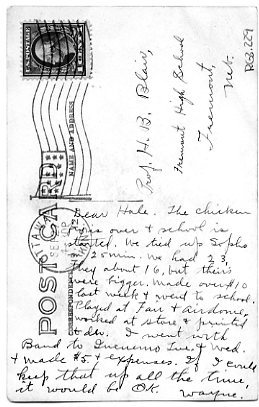 RG8.229
Prof. H. B. Blair,
Fremont High School
Fremont,
Neb.
POST CARD
NAME AND ADDRESS
CORRESPONDENCE
Dear Hale. The chicken
was over & school is
started. We tied up Sophs
in 25 min. We had 23,
They about 16, but theirs
were bigger. Made over $10
last week & went to school.
Played at Fair & Airdome,
worked at store & printed
& dev. I went with
Band to Tue. & Wed.
& made $5 & expenses. If I could
keep that up all the time,
it would be O.K. Wayne.